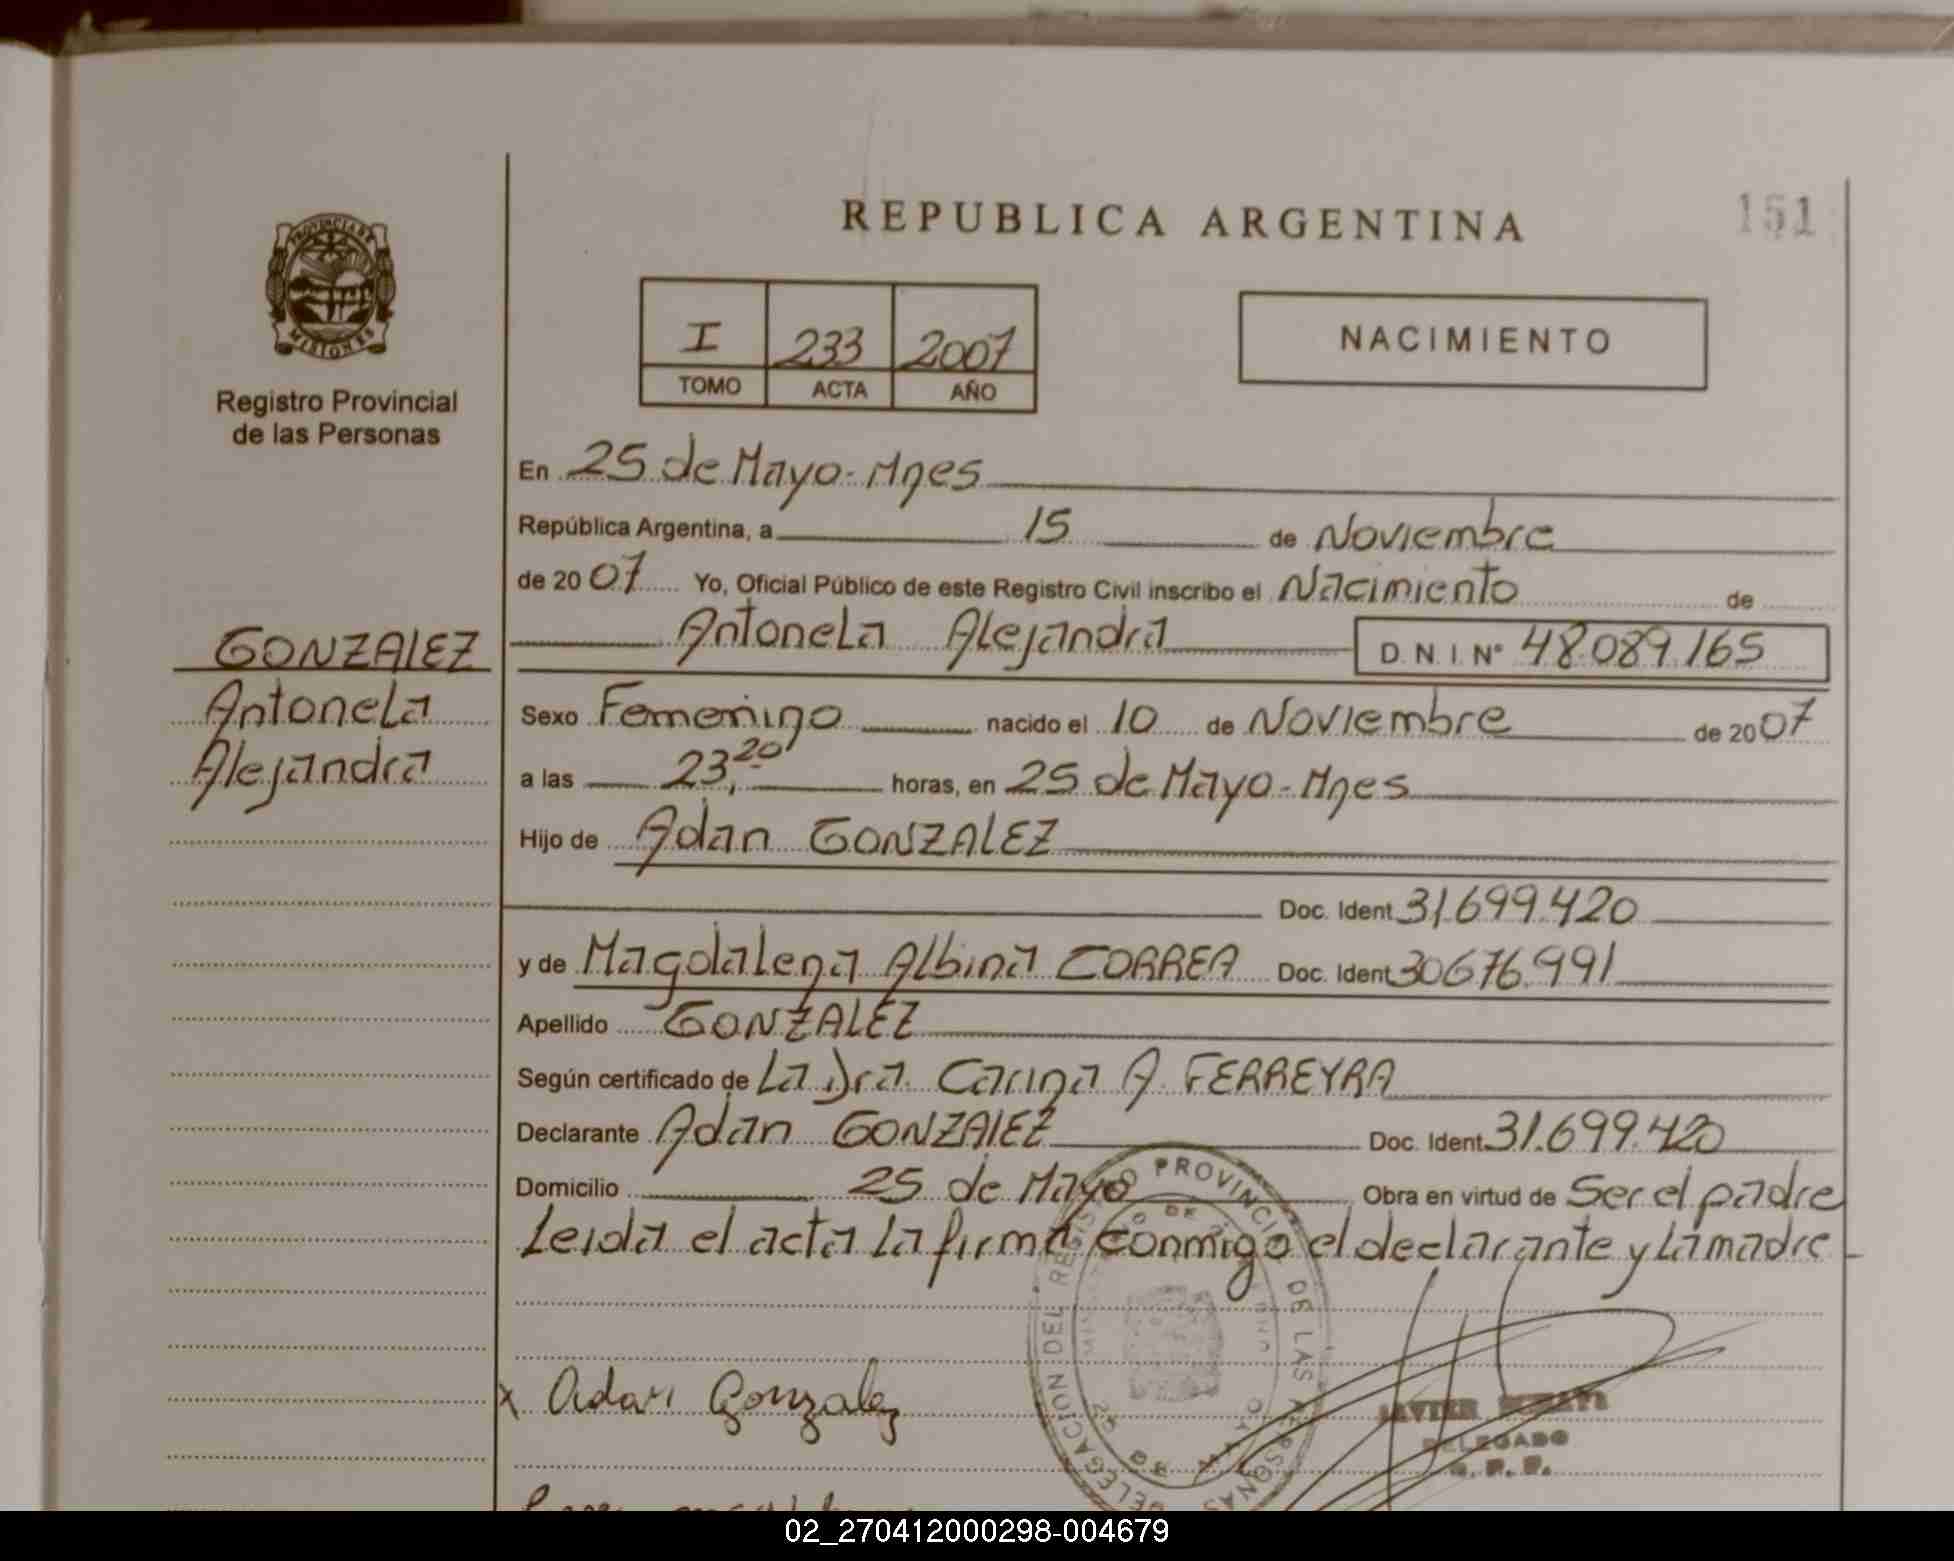 REPUBLICA ARGENTINA
151
PROVINCIA DE
MISIONES
Registro Provincial
de las Personas
I 233 2007
TOMO ACTA AÑO
NACIMIENTO
En 25 de Mayo-Mnes
República Argentina, a 15 de Noviembre
de 20 07 Yo, Oficial Público de este Registro Civil inscribo el Nacimiento de
Antonela Alejandra D.N.I.Nº 48.089.165
GONZALEZ
Antonela
Alejandra
Sexo Femenino nacido el 10 de Noviembre de 20 07
a las 23,20 horas, en 25 de Mayo-Mnes
Hijo de Adan GONZALEZ
Doc. Ident 31.699.420
y de Magdalena Albina CORREA Doc. Ident 30676.991
Apellido GONZALEZ
Según certificado de La Dra. Carina A. FERREYRA
Declarante Adan GONZALEZ Doc. Ident. 31.699.420
Domicilio 25 de Mayo Obra en virtud de Ser el padre
Leida el acta la firma conmigo el declarante y la madre
DELEGACION DEL REGISTRO PROVINCIAL DE LAS PERSONAS
25 DE MAYO
x Adan Gonzalez
JAVIER
DELEGADO
R. P. P.
02_270412000298-004679